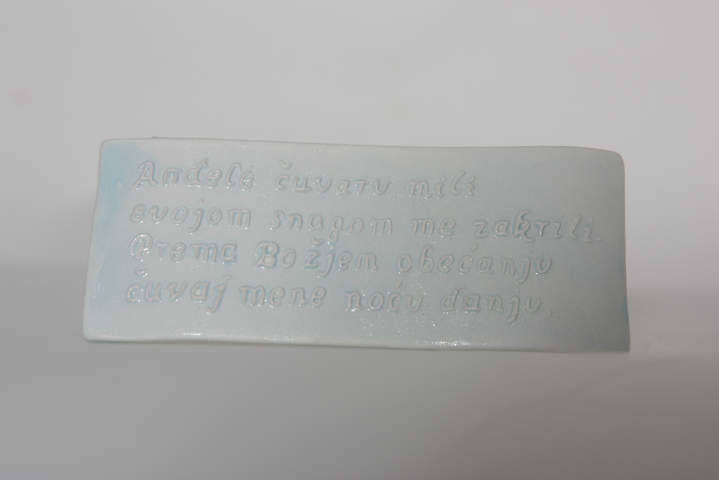 Anđele čuvaru mili
svojom snagom me zakrili.
Prema Božjem obećanju
čuvaj mene noću danju.